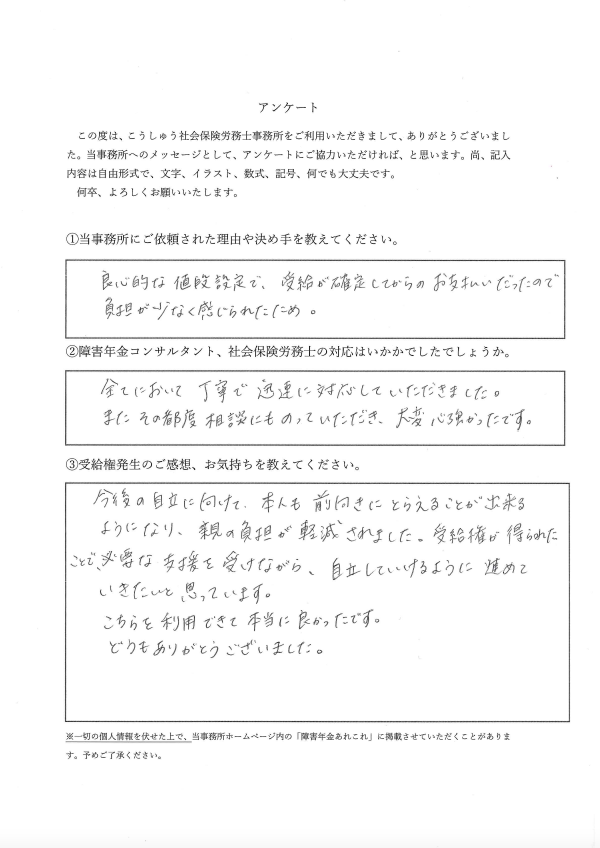 アンケート
この度は、こうしゅう社会保険労務士事務所をご利用いただきまして、ありがとうございまし
た。当事務所へのメッセージとして、アンケートにご協力いただければ、と思います。尚、記入
内容は自由形式で、文字、イラスト、数式、記号、何でも大丈夫です。
何卒、よろしくお願いいたします。
①当事務所にご依頼された理由や決め手を教えてください。
良心的な値段設定で、受給が確定してからのお支払いだったので
負担が少なく感じられたため。
②障害年金コンサルタント、社会保険労務士の対応はいかかでしたでしょうか。
全てにおいて丁寧で迅速に対応していただきました。
またその都度相談にものっていただき、大変心強かったです。
③受給権発生のご感想、お気持ちを教えてください。
今後の自立に向けて、本人も前向きにとらえることが出来る
ようになり、親の負担が軽減されました。受給権が得られた
ことで、必要な支援を受けながら、自立していけるように進めて
いきたいと思っています。
こちらを利用できて本当に良かったです。
どうもありがとうございました。
※一切の個人情報を伏せた上で、当事務所ホームページ内の「障害年金あれこれ」に掲載させていただくことがありま
す。予めご了承ください。